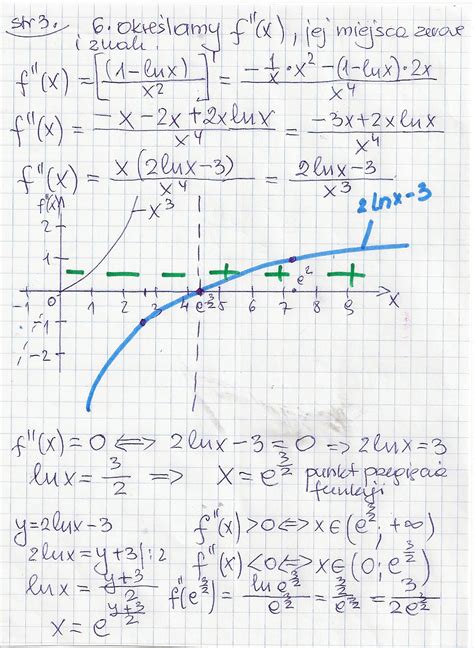 str 3. 6. określamy f''(x), jej miejsca zerowe
i znaki.
f''(x) = [(1-lnx)/x²]' = (-1/x · x² - (1-lnx)·2x)/x⁴
f''(x) = (-x - 2x + 2x lnx)/x⁴ = (-3x + 2x lnx)/x⁴
f''(x) = x(2lnx-3)/x⁴ = (2lnx-3)/x³
f''(x) x³ 2lnx-3
2
1
- - - + + +
e²
-1 0 1 2 3 e^(3/2) 5 6 7 8 9 x
-1
-2
f''(x) = 0 ⟺ 2lnx-3 = 0 ⟹ 2lnx = 3
lnx = 3/2 ⟹ x = e^(3/2) punkt przegięcia
funkcji
y = 2lnx-3 f''(x) > 0 ⟺ x ∈ (e^(3/2); +∞)
2lnx = y+3 |:2 f''(x) < 0 ⟺ x ∈ (0; e^(3/2))
lnx = (y+3)/2 f(e^(3/2)) = ln e^(3/2)/e^(3/2) = (3/2)/e^(3/2) = 3/(2e^(3/2))
x = e^((y+3)/2)